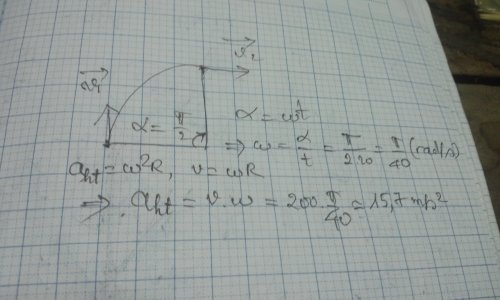 v₁ v₂
α = π/2
α = ωt
⇒ ω = α/t = π/2.20 = π/40 (rad/s)
aht = ω²R, v = ωR
⇒ aht = v.ω = 200.π/40 = 15,7 m/s²